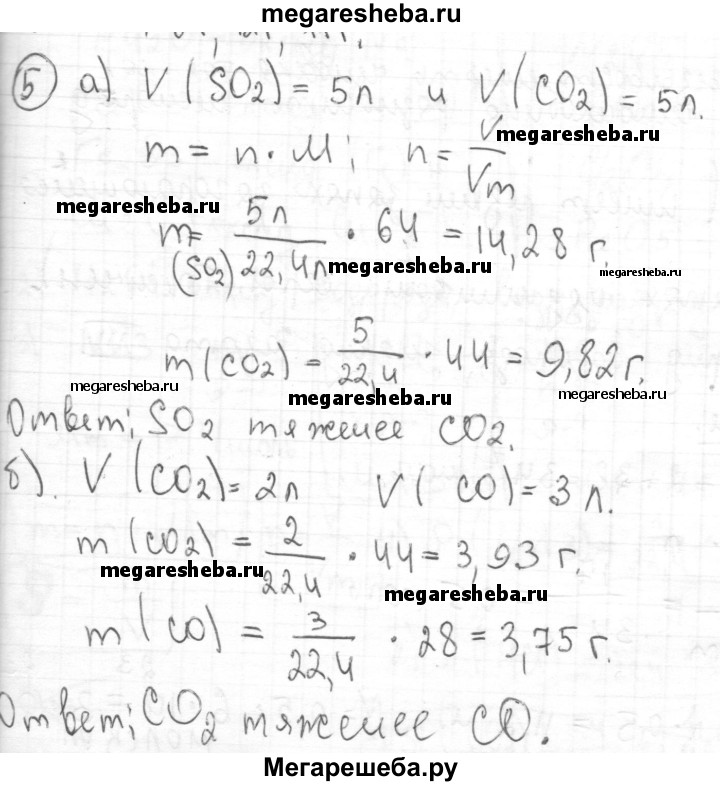 megaresheba.ru
5 а) V (SO2) = 5л и V(CO2) = 5л.
megaresheba.ru
m = n · M; n = V/Vm
megaresheba.ru
m(SO2) = 5л/22,4л · 64 = 14,28 г.
megaresheba.ru
megaresheba.ru
m(CO2) = 5/22,4 · 44 = 9,82 г.
megaresheba.ru
megaresheba.ru
megaresheba.ru
Ответ; SO2 тяжелее CO2.
б). V (CO2) = 2л V( CO) = 3 л.
m (CO2) = 2/22,4 · 44 = 3,93 г.
megaresheba.ru
megaresheba.ru
m (CO) = 3/22,4 · 28 = 3,75 г.
Ответ; CO2 тяжелее CO.
Мегарешеба.ру